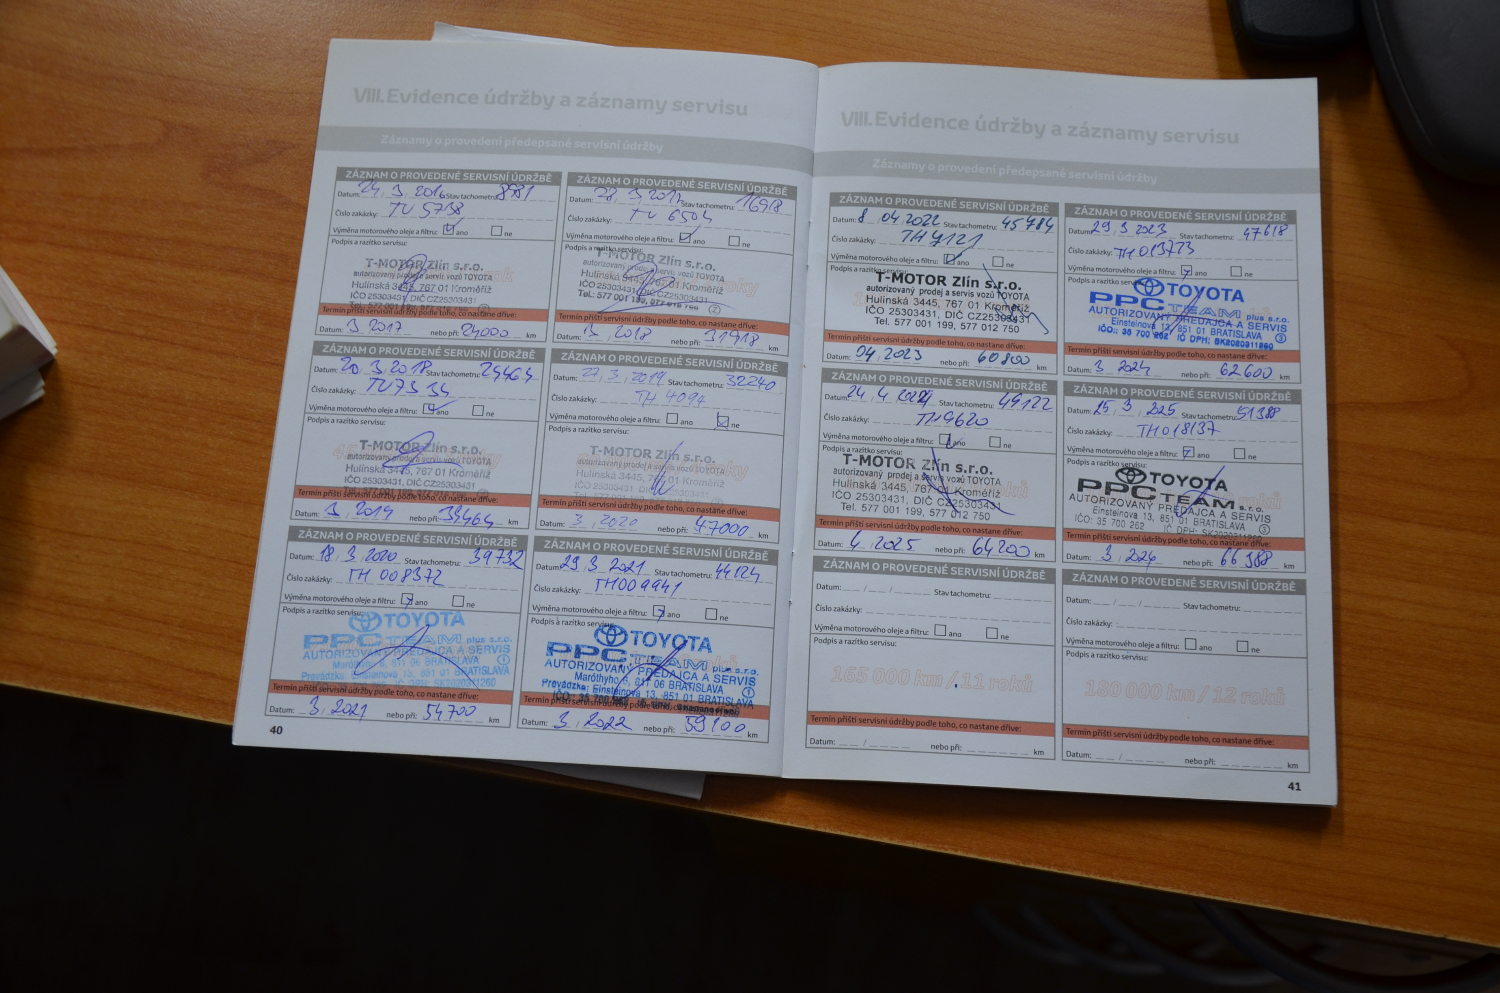 VIII. Evidence údržby a záznamy servisu
Záznamy o provedení předepsané servisní údržby
ZÁZNAM O PROVEDENÉ SERVISNÍ ÚDRŽBĚ
Datum: 24, 3, 2016 Stav tachometru: 8981
Číslo zakázky: TU 5738
Výměna motorového oleje a filtru: ano ne
Podpis a razítko servisu:
T-MOTOR Zlín s.r.o.
autorizovaný prodej a servis vozů TOYOTA
Hulínská 3445, 767 01 Kroměříž
IČO 25303431, DIČ CZ25303431
Termín příští servisní údržby podle toho, co nastane dříve:
Datum: 3, 2017 nebo při: 24000 km
ZÁZNAM O PROVEDENÉ SERVISNÍ ÚDRŽBĚ
Datum: 28, 3, 2017 Stav tachometru: 16918
Číslo zakázky: TU 6504
Výměna motorového oleje a filtru: ano ne
Podpis a razítko servisu:
T-MOTOR Zlín s.r.o.
autorizovaný prodej a servis vozů TOYOTA
Hulínská 3445, 767 01 Kroměříž
IČO 25303431, DIČ CZ25303431
Tel.: 577 001 199, 577 012 750
Termín příští servisní údržby podle toho, co nastane dříve:
Datum: 3, 2018 nebo při: 31918 km
ZÁZNAM O PROVEDENÉ SERVISNÍ ÚDRŽBĚ
Datum: 20, 3, 2018 Stav tachometru: 24464
Číslo zakázky: TU 7334
Výměna motorového oleje a filtru: ano ne
Podpis a razítko servisu:
T-MOTOR Zlín s.r.o.
autorizovaný prodej a servis vozů TOYOTA
Hulínská 3445, 767 01 Kroměříž
IČO 25303431, DIČ CZ25303431
Termín příští servisní údržby podle toho, co nastane dříve:
Datum: 3, 2019 nebo při: 39464 km
ZÁZNAM O PROVEDENÉ SERVISNÍ ÚDRŽBĚ
Datum: 27, 3, 2019 Stav tachometru: 32240
Číslo zakázky: TH 4094
Výměna motorového oleje a filtru: ano ne
Podpis a razítko servisu:
T-MOTOR Zlín s.r.o.
autorizovaný prodej a servis vozů TOYOTA
Hulínská 3445, 767 01 Kroměříž
IČO 25303431, DIČ CZ25303431
Termín příští servisní údržby podle toho, co nastane dříve:
Datum: 3, 2020 nebo při: 47000 km
ZÁZNAM O PROVEDENÉ SERVISNÍ ÚDRŽBĚ
Datum: 18, 3, 2020 Stav tachometru: 39732
Číslo zakázky: TH 008372
Výměna motorového oleje a filtru: ano ne
Podpis a razítko servisu:
TOYOTA
PPC TEAM plus s.r.o.
AUTORIZOVANÝ PREDAJCA A SERVIS
Maróthyho 6, 811 06 BRATISLAVA
Prevádzka: Einsteinova 13, 851 01 BRATISLAVA
Termín příští servisní údržby podle toho, co nastane dříve:
Datum: 3, 2021 nebo při: 54700 km
ZÁZNAM O PROVEDENÉ SERVISNÍ ÚDRŽBĚ
Datum: 29, 3, 2021 Stav tachometru: 44124
Číslo zakázky: TH009941
Výměna motorového oleje a filtru: ano ne
Podpis a razítko servisu:
TOYOTA
PPC TEAM plus s.r.o.
AUTORIZOVANÝ PREDAJCA A SERVIS
Maróthyho 6, 811 06 BRATISLAVA
Prevádzka: Einsteinova 13, 851 01 BRATISLAVA
IČO: 35 700 262
Termín příští servisní údržby podle toho, co nastane dříve:
Datum: 3, 2022 nebo při: 59100 km
40
VIII. Evidence údržby a záznamy servisu
Záznamy o provedení předepsané servisní údržby
ZÁZNAM O PROVEDENÉ SERVISNÍ ÚDRŽBĚ
Datum: 8, 04, 2022 Stav tachometru: 45784
Číslo zakázky: TH 7121
Výměna motorového oleje a filtru: ano ne
Podpis a razítko servisu:
T-MOTOR Zlín s.r.o.
autorizovaný prodej a servis vozů TOYOTA
Hulínská 3445, 767 01 Kroměříž
IČO 25303431, DIČ CZ25303431
Tel. 577 001 199, 577 012 750
Termín příští servisní údržby podle toho, co nastane dříve:
Datum: 04, 2023 nebo při: 60800 km
ZÁZNAM O PROVEDENÉ SERVISNÍ ÚDRŽBĚ
Datum: 29, 3, 2023 Stav tachometru: 47618
Číslo zakázky: TH013773
Výměna motorového oleje a filtru: ano ne
Podpis a razítko servisu:
TOYOTA
PPC TEAM plus s.r.o.
AUTORIZOVANÝ PREDAJCA A SERVIS
Einsteinova 13, 851 01 BRATISLAVA
IČO: 35 700 262 IČ DPH: SK2020311260
Termín příští servisní údržby podle toho, co nastane dříve:
Datum: 3, 2024 nebo při: 62600 km
ZÁZNAM O PROVEDENÉ SERVISNÍ ÚDRŽBĚ
Datum: 24, 4, 2024 Stav tachometru: 49122
Číslo zakázky: TH 9620
Výměna motorového oleje a filtru: ano ne
Podpis a razítko servisu:
T-MOTOR Zlín s.r.o.
autorizovaný prodej a servis vozů TOYOTA
Hulínská 3445, 767 01 Kroměříž
IČO 25303431, DIČ CZ25303431
Tel. 577 001 199, 577 012 750
Termín příští servisní údržby podle toho, co nastane dříve:
Datum: 4, 2025 nebo při: 64200 km
ZÁZNAM O PROVEDENÉ SERVISNÍ ÚDRŽBĚ
Datum: 25, 3, 225 Stav tachometru: 51388
Číslo zakázky: TH018137
Výměna motorového oleje a filtru: ano ne
Podpis a razítko servisu:
TOYOTA
PPC TEAM s.r.o.
AUTORIZOVANÝ PREDAJCA A SERVIS
Einsteinova 13, 851 01 BRATISLAVA
IČO: 35 700 262 IČ DPH: SK2020311260
Termín příští servisní údržby podle toho, co nastane dříve:
Datum: 3, 2026 nebo při: 66388 km
ZÁZNAM O PROVEDENÉ SERVISNÍ ÚDRŽBĚ
Datum: / / Stav tachometru:
Číslo zakázky:
Výměna motorového oleje a filtru: ano ne
Podpis a razítko servisu:
165 000 km / 11 roků
Termín příští servisní údržby podle toho, co nastane dříve:
Datum: / nebo při: km
ZÁZNAM O PROVEDENÉ SERVISNÍ ÚDRŽBĚ
Datum: / / Stav tachometru:
Číslo zakázky:
Výměna motorového oleje a filtru: ano ne
Podpis a razítko servisu:
180 000 km / 12 roků
Termín příští servisní údržby podle toho, co nastane dříve:
Datum: / nebo při: km
41